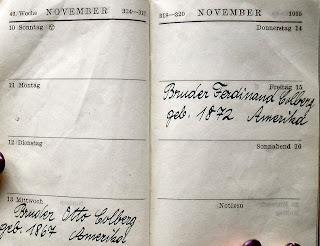 46. Woche NOVEMBER 314–317
10 Sonntag
11 Montag
12 Dienstag
13 Mittwoch
Bruder Otto Colberg
geb. 1867 Amerika
318–320 NOVEMBER 1935
Donnerstag 14
Freitag 15
Bruder Ferdinand Colberg
geb. 1872 Amerika
Sonnabend 16
Notizen